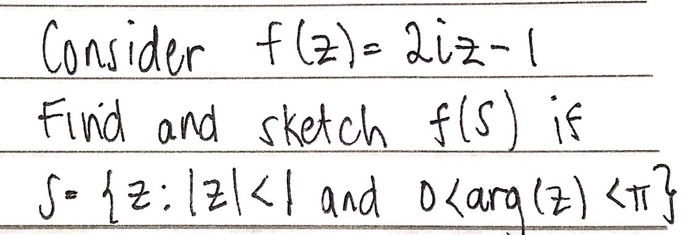 Consider f(z)= 2iz-1
Find and sketch f(S) if
S= {z: |z|<1 and 0<arg(z) <π}